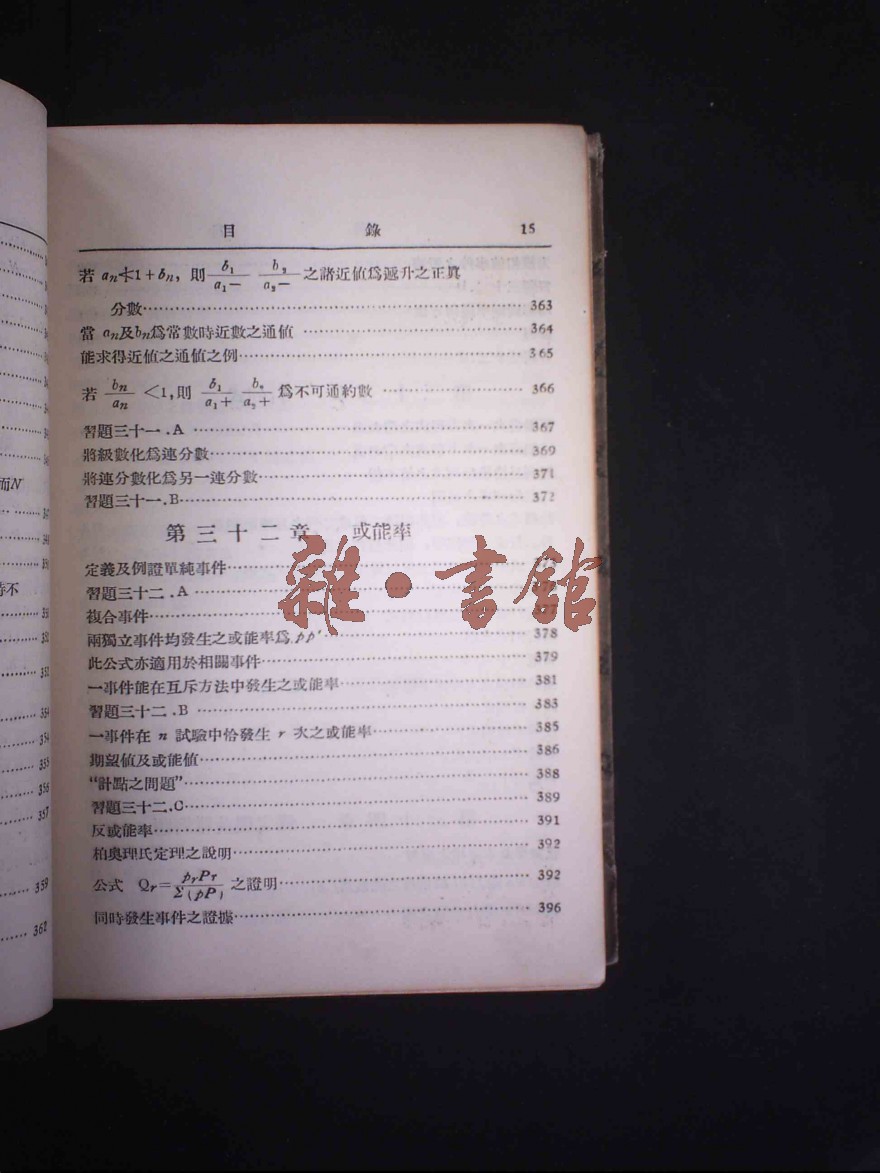 目 錄 15
若 aₙ≮1+bₙ, 則 b₁/a₁− b₂/a₂− 之諸近值爲遞升之正眞
分數 363
當 aₙ及bₙ爲常數時近數之通值 364
能求得近值之通值之例 365
若 bₙ/aₙ <1,則 b₁/a₁+ b₂/a₂+ 爲不可通約數 366
習題三十一.A 367
將級數化爲連分數 369
將連分數化爲另一連分數 371
習題三十一.B 372
第三十二章 或能率
定義及例證單純事件
習題三十二.A
複合事件
兩獨立事件均發生之或能率爲 pp′ 378
此公式亦適用於相關事件 379
一事件能在互斥方法中發生之或能率 381
習題三十二.B 383
一事件在 n 試驗中恰發生 r 次之或能率 385
期望值及或能值 386
“計點之問題” 388
習題三十二.C 389
反或能率 391
柏奧理氏定理之說明 392
公式 Qᵣ= pᵣPᵣ/Σ(pP) 之證明 392
同時發生事件之證據 396
雜·書館
而N
359
362